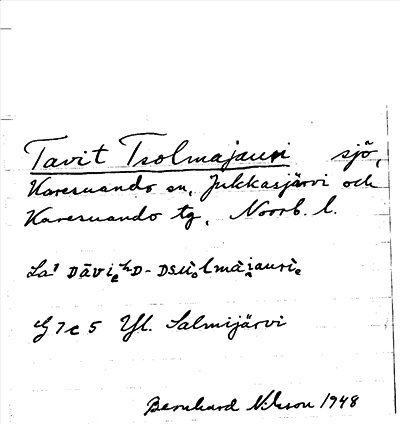 Tavit Tsolmajauri sjö,
Karesuando sn, Jukkasjärvi och
Karesuando tg, Norrb. l.
La¹
G 7 c 5 Yl. Salmijärvi
Bernhard Nilsson 1948